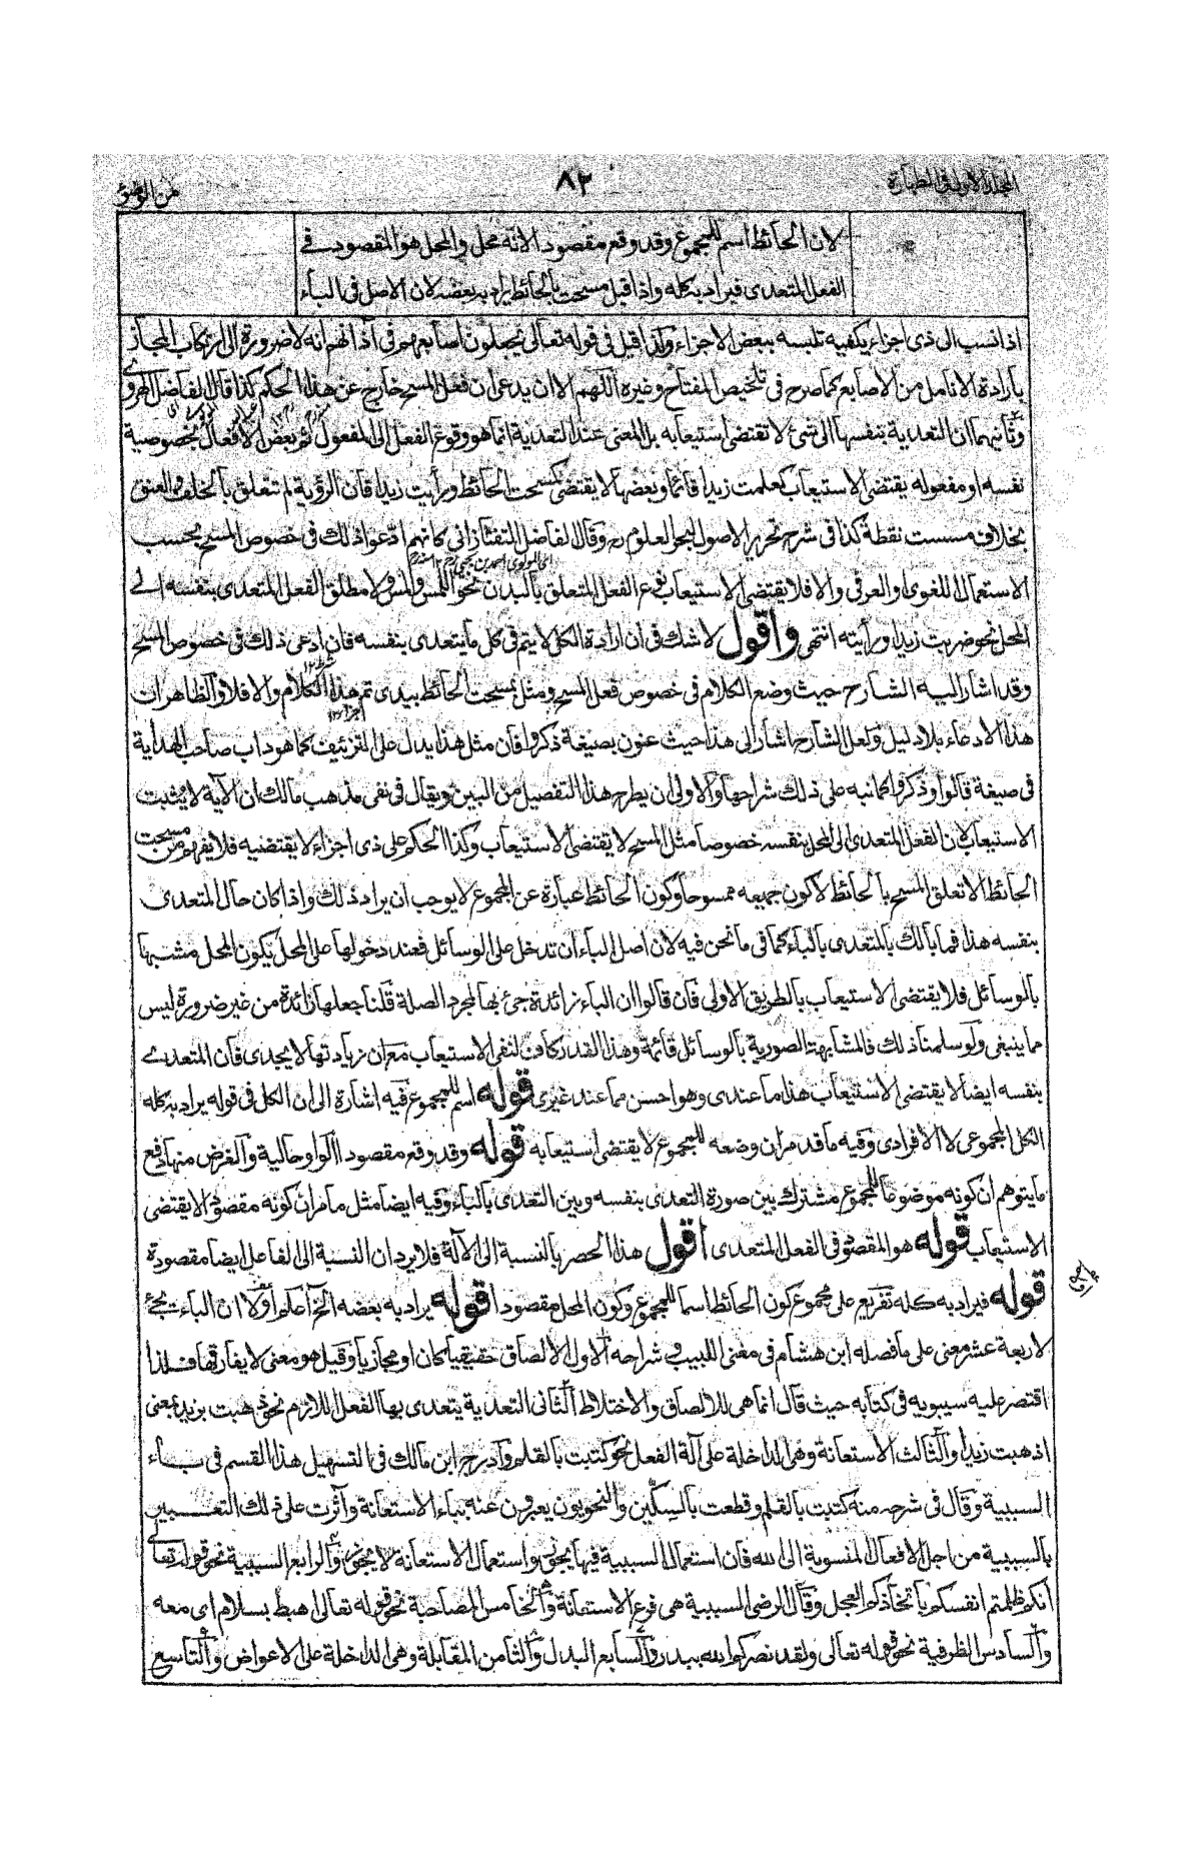 المجلد الاول فى الطهارة
٨٢
من الوضوء
لان الحائط اسم للمجموع وقد وقع مقصود الانه محل والمحل هو المقصود فے
الفعل المتعدى فيراد به كله واذا قيل مسحت بالحائط يراد به بعضه لان الاصل فى الباء
اذا نسب الى ذى اجزاء يكفيه تلبسه ببعض الاجزاء ولذا قيل فى قوله تعالى يجعلون اصابعهم فى آذانهم انه لا ضرورة الى ارتكاب المجاز
بارادة الانامل من الاصابع كما صرح فى تلخيص المفتاح وغيره اللهم الا ان يدعى ان فعل المسح خارج عن هذا الحكم كذا قال الفاضل الهروى
وثانيهما ان التعدية بنفسها الى شئ لا تقتضى استيعابه بل المعنى عند التعدية انما هو وقوع الفعل الى المفعول ثم بعض الافعال بخصوصية
نفسه او مفعوله يقتضى الاستيعاب كعلمت زيدا قائما وبعضها لا يقتضى كمسحت الحائط ورأيت زيدا فان الرؤية لم تتعلق بالخلف والعنق
بخلاف مسست نقطة كذا فى شرح تحرير الاصول لبحر العلوم ره وقال الفاضل التفتازانى كانهم ادعوا ذلك فى خصوص المسح بحسب
اى المولوى احمد بن يحيى
الاستعمال اللغوى او العرفى والا فلا يقتضى الاستيعاب نوع الفعل المتعلق بالبدن نحو اللمس والمس ولا مطلق الفعل المتعدى بنفسه الے
المحل نحو ضربت زيدا ورأيته انتهى واقول لا شك فى ان ارادة الكل لا يتم فى كل ما يتعدى بنفسه فان ادعى ذلك فى خصوص المسح
وقد اشار اليه الشارح حيث وضع الكلام فى خصوص فعل المسح ومثل بمسحت الحائط بيدى تم هذا الكلام والا فلا والظاهر ان
هذا الادعاء بلا دليل ولعل الشارح اشار الى هذا حيث عنون بصيغة ذكروا فان مثل هذا يدل على التزئيف كما هو داب صاحب الهداية
فى صيغة قالوا وذكروا كما نبه على ذلك شراحها والاولى ان يطرح هذا التفصيل من البين ويقال فى نفى مذهب مالك ان الآية لا يثبت
الاستيعاب لان الفعل المتعدى الى المحل بنفسه خصوصا مثل المسح لا يقتضى الاستيعاب وكذا الحكم على ذى اجزاء لا يقتضيه فلا يفهم من مسحت
الحائط الا تعلق المسح بالحائط لا كون جميعه ممسوحا وكون الحائط عبارة عن المجموع لا يوجب ان يراد ذلك واذا كان حال المتعدى
بنفسه هذا فما بالك بالمتعدى بالباء كما فى ما نحن فيه لان اصل الباء ان تدخل على الوسائل فعند دخولها على المحل يكون المحل مشبها
بالوسائل فلا يقتضى الاستيعاب بالطريق الاولى فان قالوا ان الباء زائدة جئ بها لمجرد الصلة قلنا جعلها زائدة من غير ضرورة ليس
مما ينبغى ولو سلمنا ذلك فالمشابهة الصورية بالوسائل قائمة وهذا القدر كاف لنفى الاستيعاب مع ان زيادتها لا يجدى فان المتعدے
بنفسه ايضا لا يقتضى الاستيعاب هذا ما عندى وهو احسن مما عند غيرى قوله اسم للمجموع فيه اشارة الى ان الكل فى قوله يراد به كله
الكل المجموعى لا الافرادى وفيه ما قد مر ان وضعه للمجموع لا يقتضى استيعابه قوله وقد وقع مقصودا الواو حالية والغرض منها دفع
ما يتوهم ان كونه موضوعا للمجموع مشترك بين صورة التعدى بنفسه وبين التعدى بالباء وفيه ايضا مثل ما مر ان كونه مقصودا لا يقتضى
الاستيعاب قوله هو المقصود فى الفعل المتعدى اقول هذا الحصر بالنسبة الى الآلة فلا يرد ان النسبة الى الفاعل ايضا مقصودة
قوله فيراد به كله تفريع على مجموع كون الحائط اسما للمجموع وكون المحل مقصودا قوله يراد به بعضه الخ اعلم اولا ان الباء يجئ
لاربعة عشر معنى على ما فصله ابن هشام فى مغنى اللبيب و شراحه الاول الالصاق حقيقيا كان او مجازيا وقيل هو معنى لا يفارقها فلذا
اقتصر عليه سيبويه فى كتابه حيث قال انما هى للالصاق والاختلاط الثانى التعدية يتعدى بها الفعل اللازم نحو ذهبت بزيد بمعنى
اذهبت زيدا والثالث الاستعانة وهى الداخلة على آلة الفعل نحو كتبت بالقلم وادرج ابن مالك فى التسهيل هذا القسم فى باء
السببية وقال فى شرحه منه كتبت بالقلم وقطعت بالسكين والنحويون يعبرون عنه بباء الاستعانة وآثرت على ذلك التعبير
بالسببية من اجل الافعال المنسوبة الى الله فان استعمال السببية فيها يجوز واستعمال الاستعانة لا يجوز والرابع السببية نحو قوله تعالى
انكم ظلمتم انفسكم باتخاذكم العجل وقال الرضى السببية هى فرع الاستعانة والخامس المصاحبة نحو قوله تعالى اهبط بسلام اى معه
والسادس الظرفية نحو قوله تعالى ولقد نصركم الله ببدر والسابع البدل والثامن المقابلة وهى الداخلة على الاعواض والتاسع